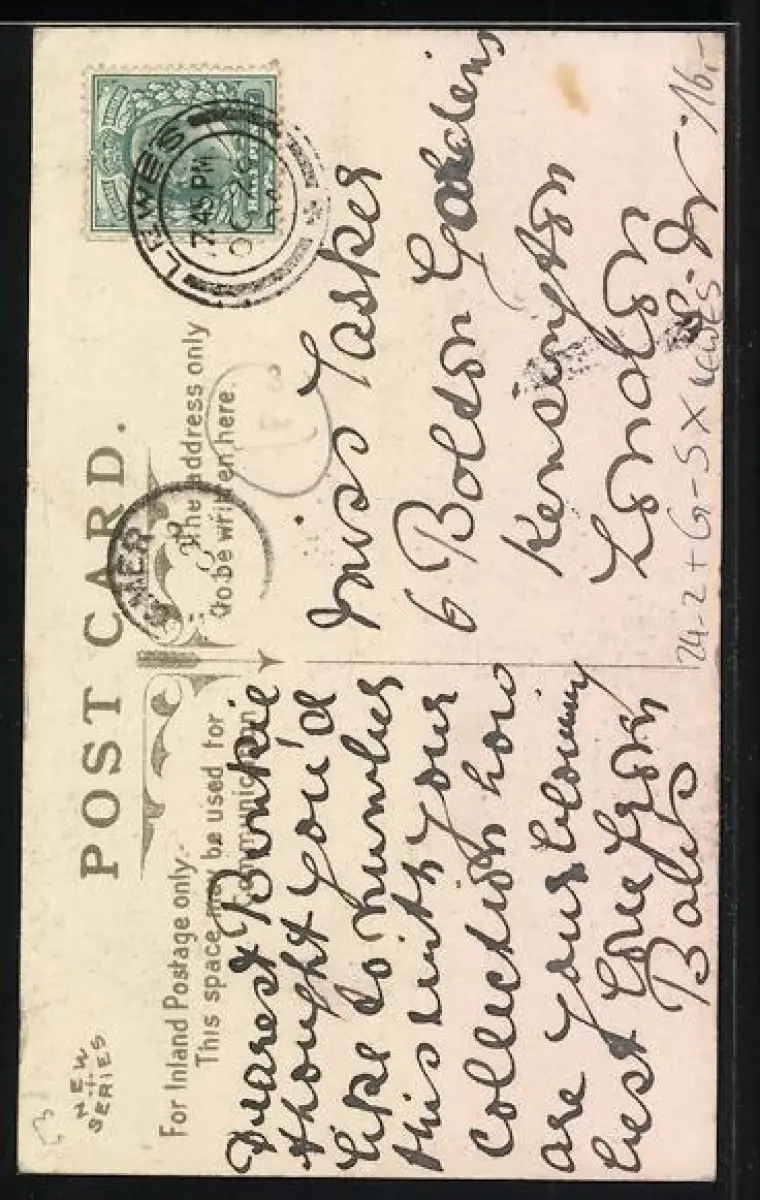 POST CARD.
NEW
SERIES
For Inland Postage only:-
This space may be used for
Communication
The address only
to be written here.
LEWES
7.45 PM
OC 28
HALFPENNY
Dearest Binkie
thought you'd
like to number
this with your
collection how
are you
best love from
Babs
Miss Tasker
6 Bolton Gardens
Kensington
London
24-2+G-SX LEWES
16,-